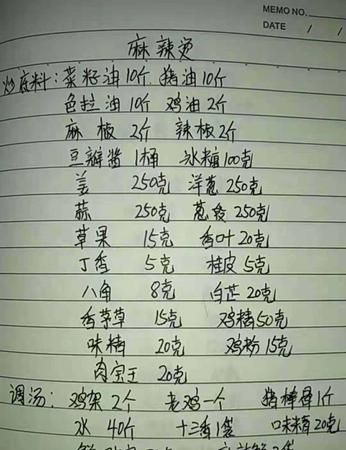 MEMO NO.
DATE / /
麻辣烫
炒底料：菜籽油10斤 猪油10斤
色拉油10斤 鸡油2斤
麻椒 2斤 辣椒2斤
豆瓣酱1桶 冰糖100克
姜 250克 洋葱250克
蒜 250克 葱段250克
草果 15克 香叶20克
丁香 5克 桂皮5克
八角 8克 白芷20克
香茅草 15克 鸡精50克
味精 20克 鸡粉15克
肉宝王 20克
调汤：鸡架2个 老鸡一个 猪棒骨1斤
水 40斤 十三香1袋 味精20克